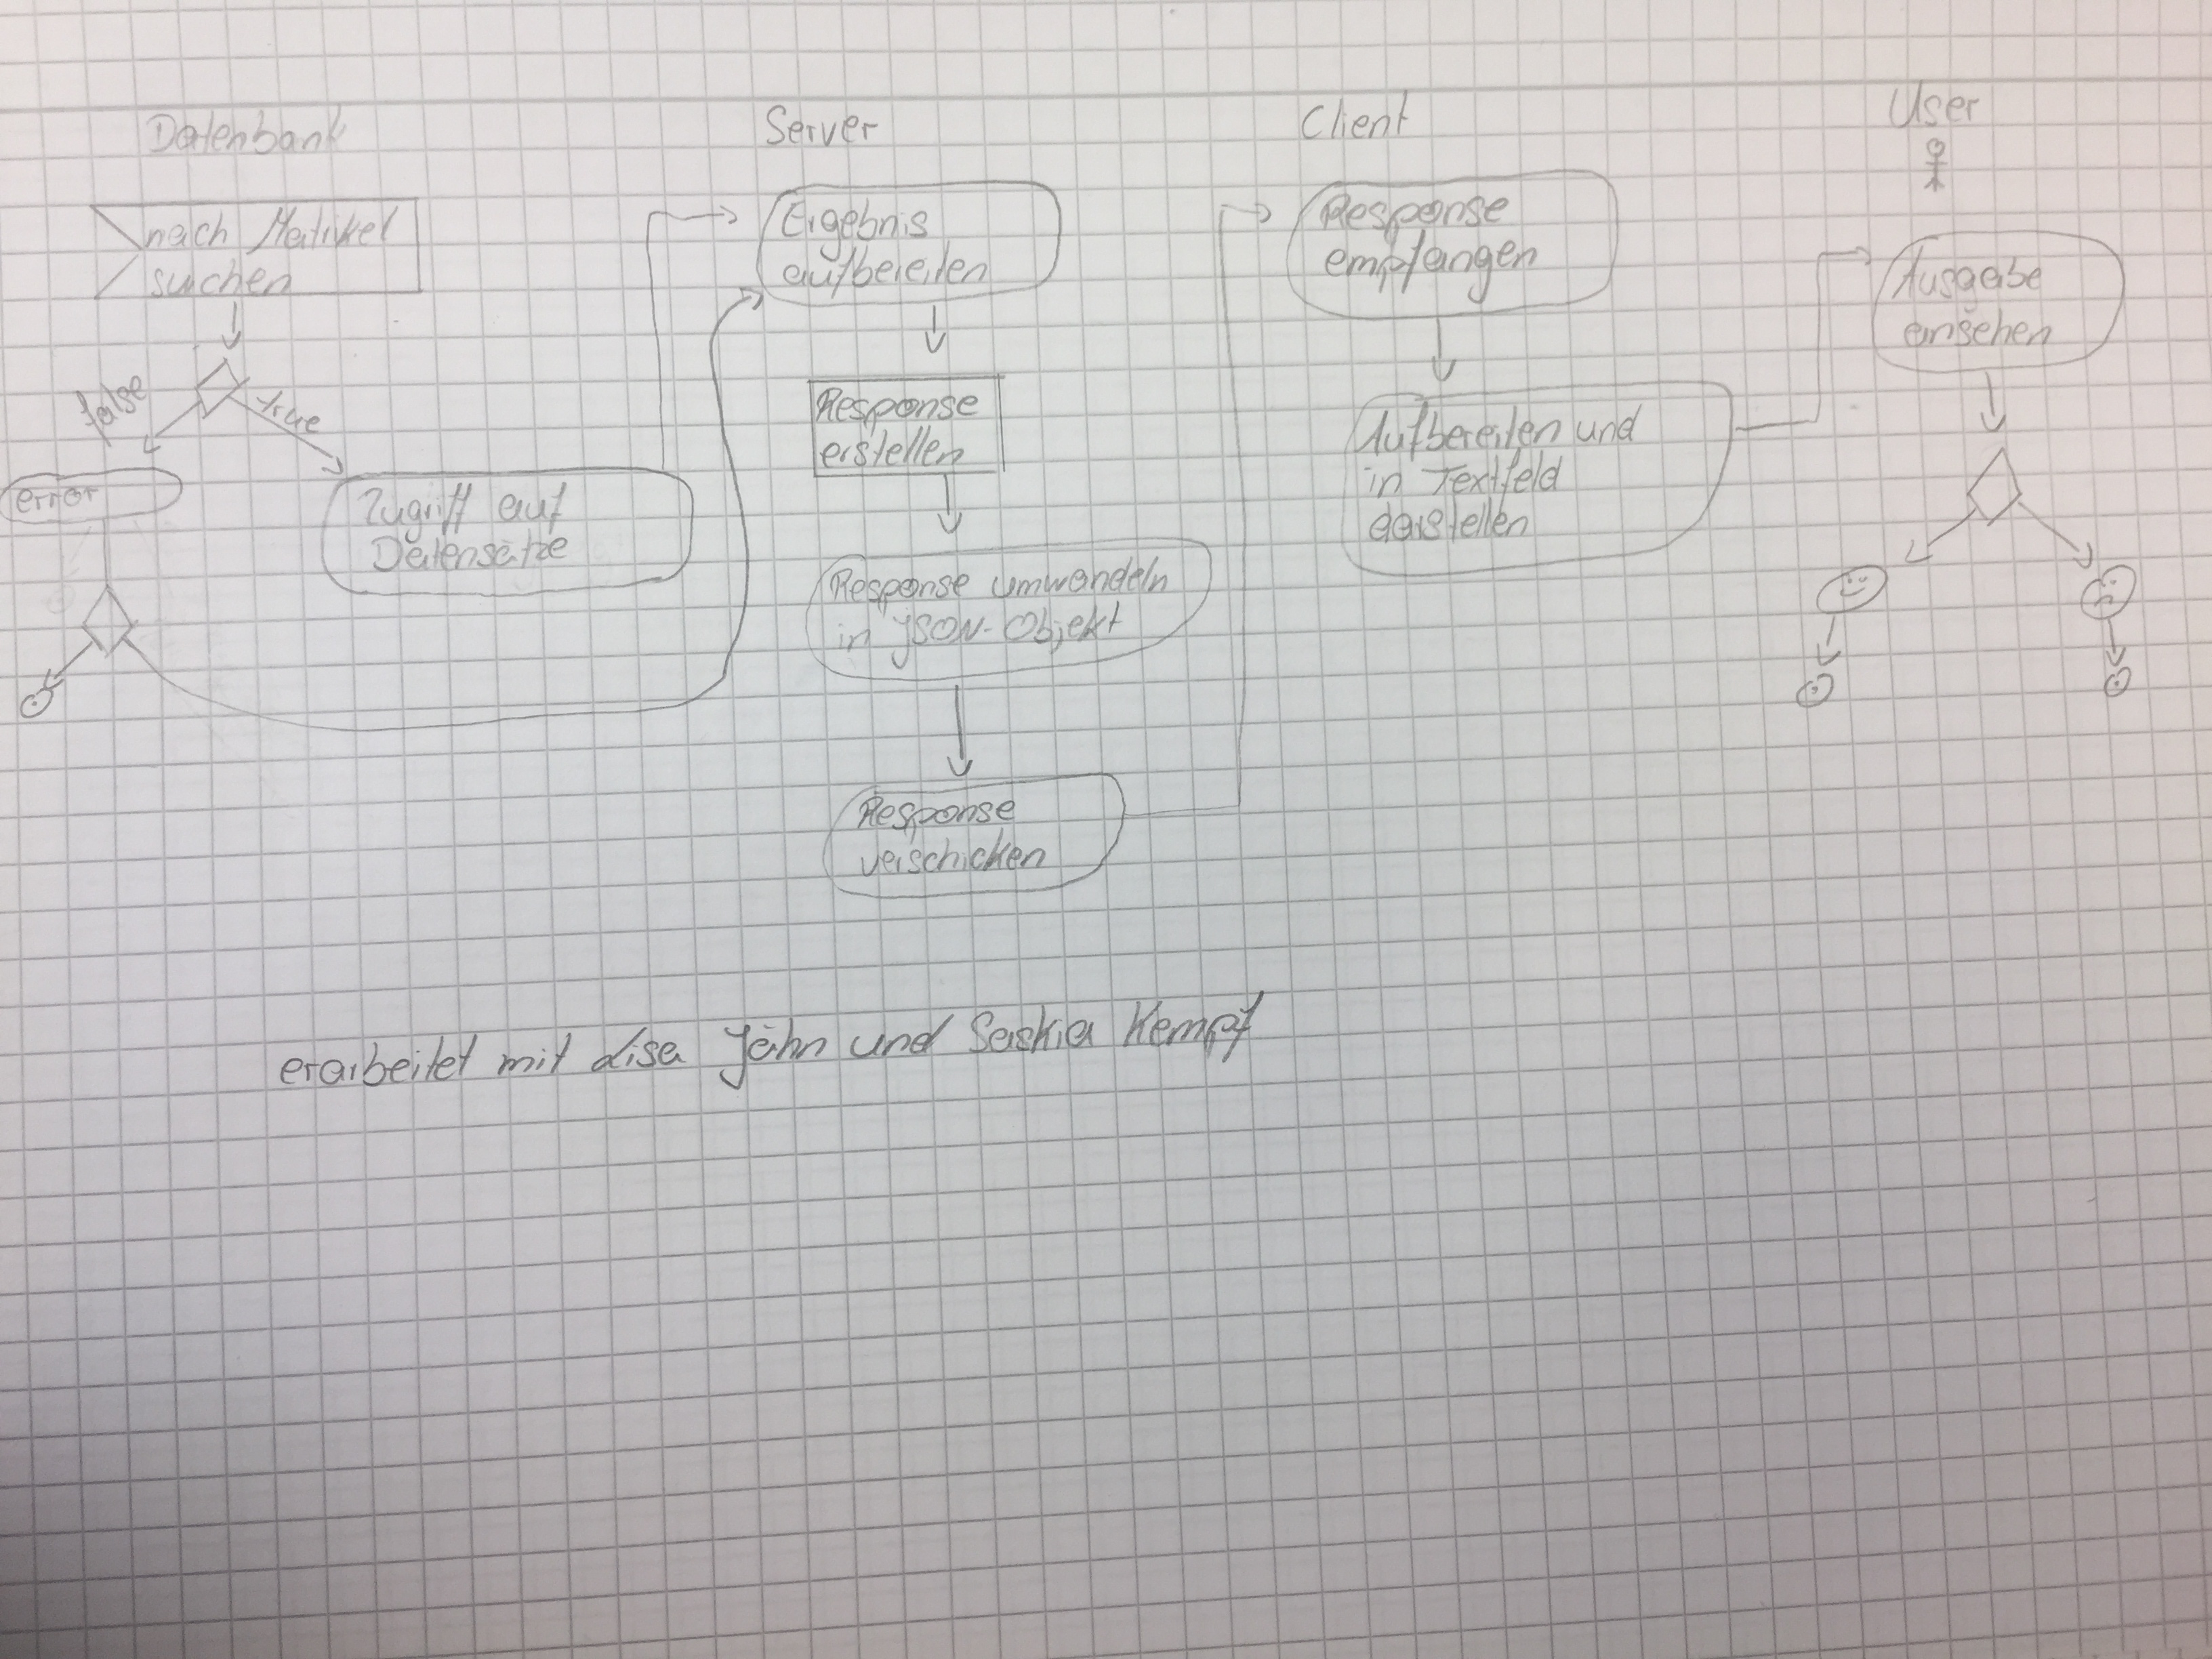 Datenbank
nach Matrikel
suchen
false
true
error
Zugriff auf
Datensätze
Server
Ergebnis
aufbereiten
Response
erstellen
Response umwandeln
in JSON-Objekt
Response
verschicken
Client
Response
empfangen
Aufbereiten und
in Textfeld
darstellen
User
Ausgabe
einsehen
erarbeitet mit Lisa Jähn und Saskia Kempf